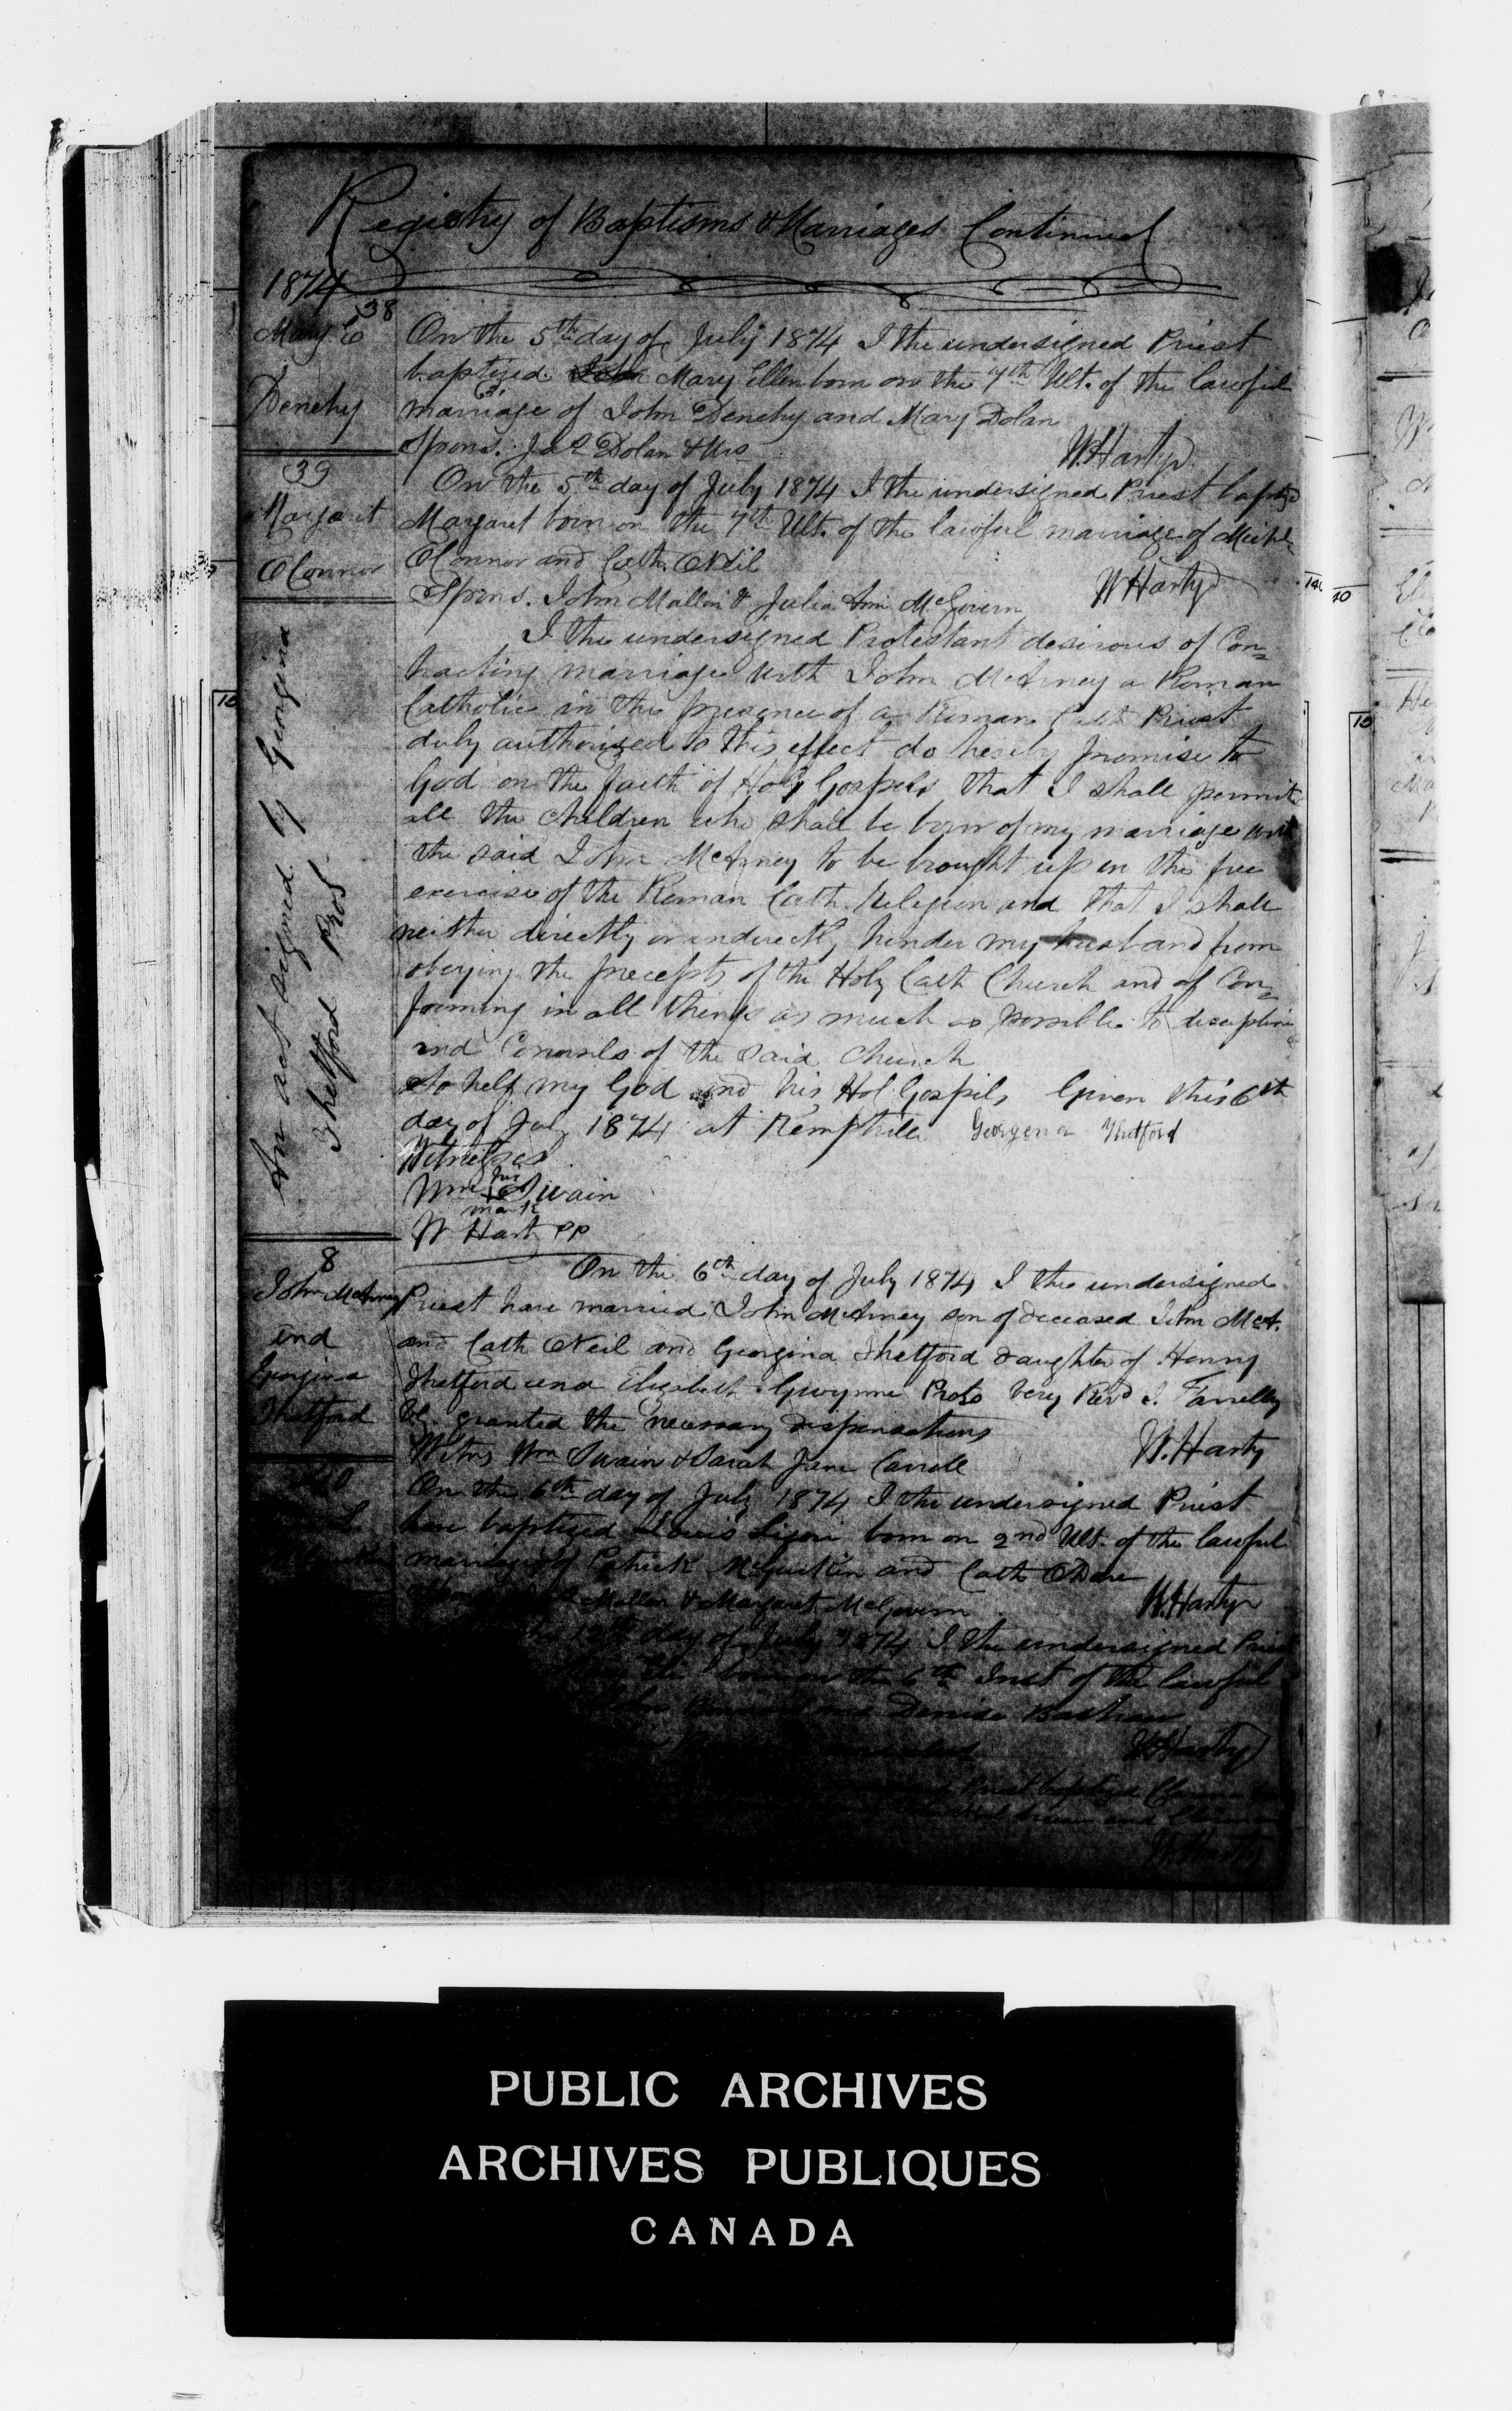 Registry of Baptisms & Marriages Continued
1874
38
Mary E
Denehy
On the 5th day of July 1874 I the undersigned Priest
baptized Mary Ellen born on the 7th Ult. of the lawful
marriage of John Denehy and Mary Dolan
Spons. Jas Dolan & Mrs
W. Harty
39
Margaret
OConnor
On the 5th day of July 1874 I the undersigned Priest baptized
Margaret born on the 7th Ult. of the lawful marriage of Michl
OConnor and Cath. ONeil
Spons. John Mallon & Julia Ann McGovern
W Harty
An act signed by Georgina
Thetford Prot.
I the undersigned Protestant desirous of Con=
tracting marriage with John McArney a Roman
Catholic in the presence of a Roman Cath Priest
duly authorized to this effect do hereby promise to
God on the faith of Holy Gospels that I shall permit
all the children who shall be born of my marriage with
the said John McArney to be brought up in the free
exercise of the Roman Cath. Religion and that I shall
neither directly or indirectly hinder my husband from
obeying the precepts of the Holy Cath Church and of Con=
forming in all things as much as possible to discipline
and Counsels of the said Church
So help my God and his Hol Gospils Given this 6th
day of July 1874 at Kemptville Georgena Thetford
Witnesses
Wm his + Swain
mark
W Hart PP
8
John McArney
and
Georgina
Thetford
On the 6th day of July 1874 I the undersigned
Priest have married John McArney son of deceased John McA.
and Cath ONeil and Georgina Thetford daughter of Henry
Thetford and Elizabeth Gwynne Prots Very Revd J. Farrelly
VG. granted the necessary dispensations
Witns Wm Swain & Sarah Jane Carroll
W. Harty
40
L
On the 6th day of July 1874 I the undersigned Priest
have baptized Louis Ligori born on 2nd Ult. of the lawful
marriage of Patrick McGuckin and Cath ODare
Mallon & Margaret McGovern
W. Harty
12th day of July 1874 I the undersigned Priest
born on the 6th Inst of the lawful
Denise Bashaw
W Harty
Priest baptized
and
W. Harty
PUBLIC ARCHIVES
ARCHIVES PUBLIQUES
CANADA